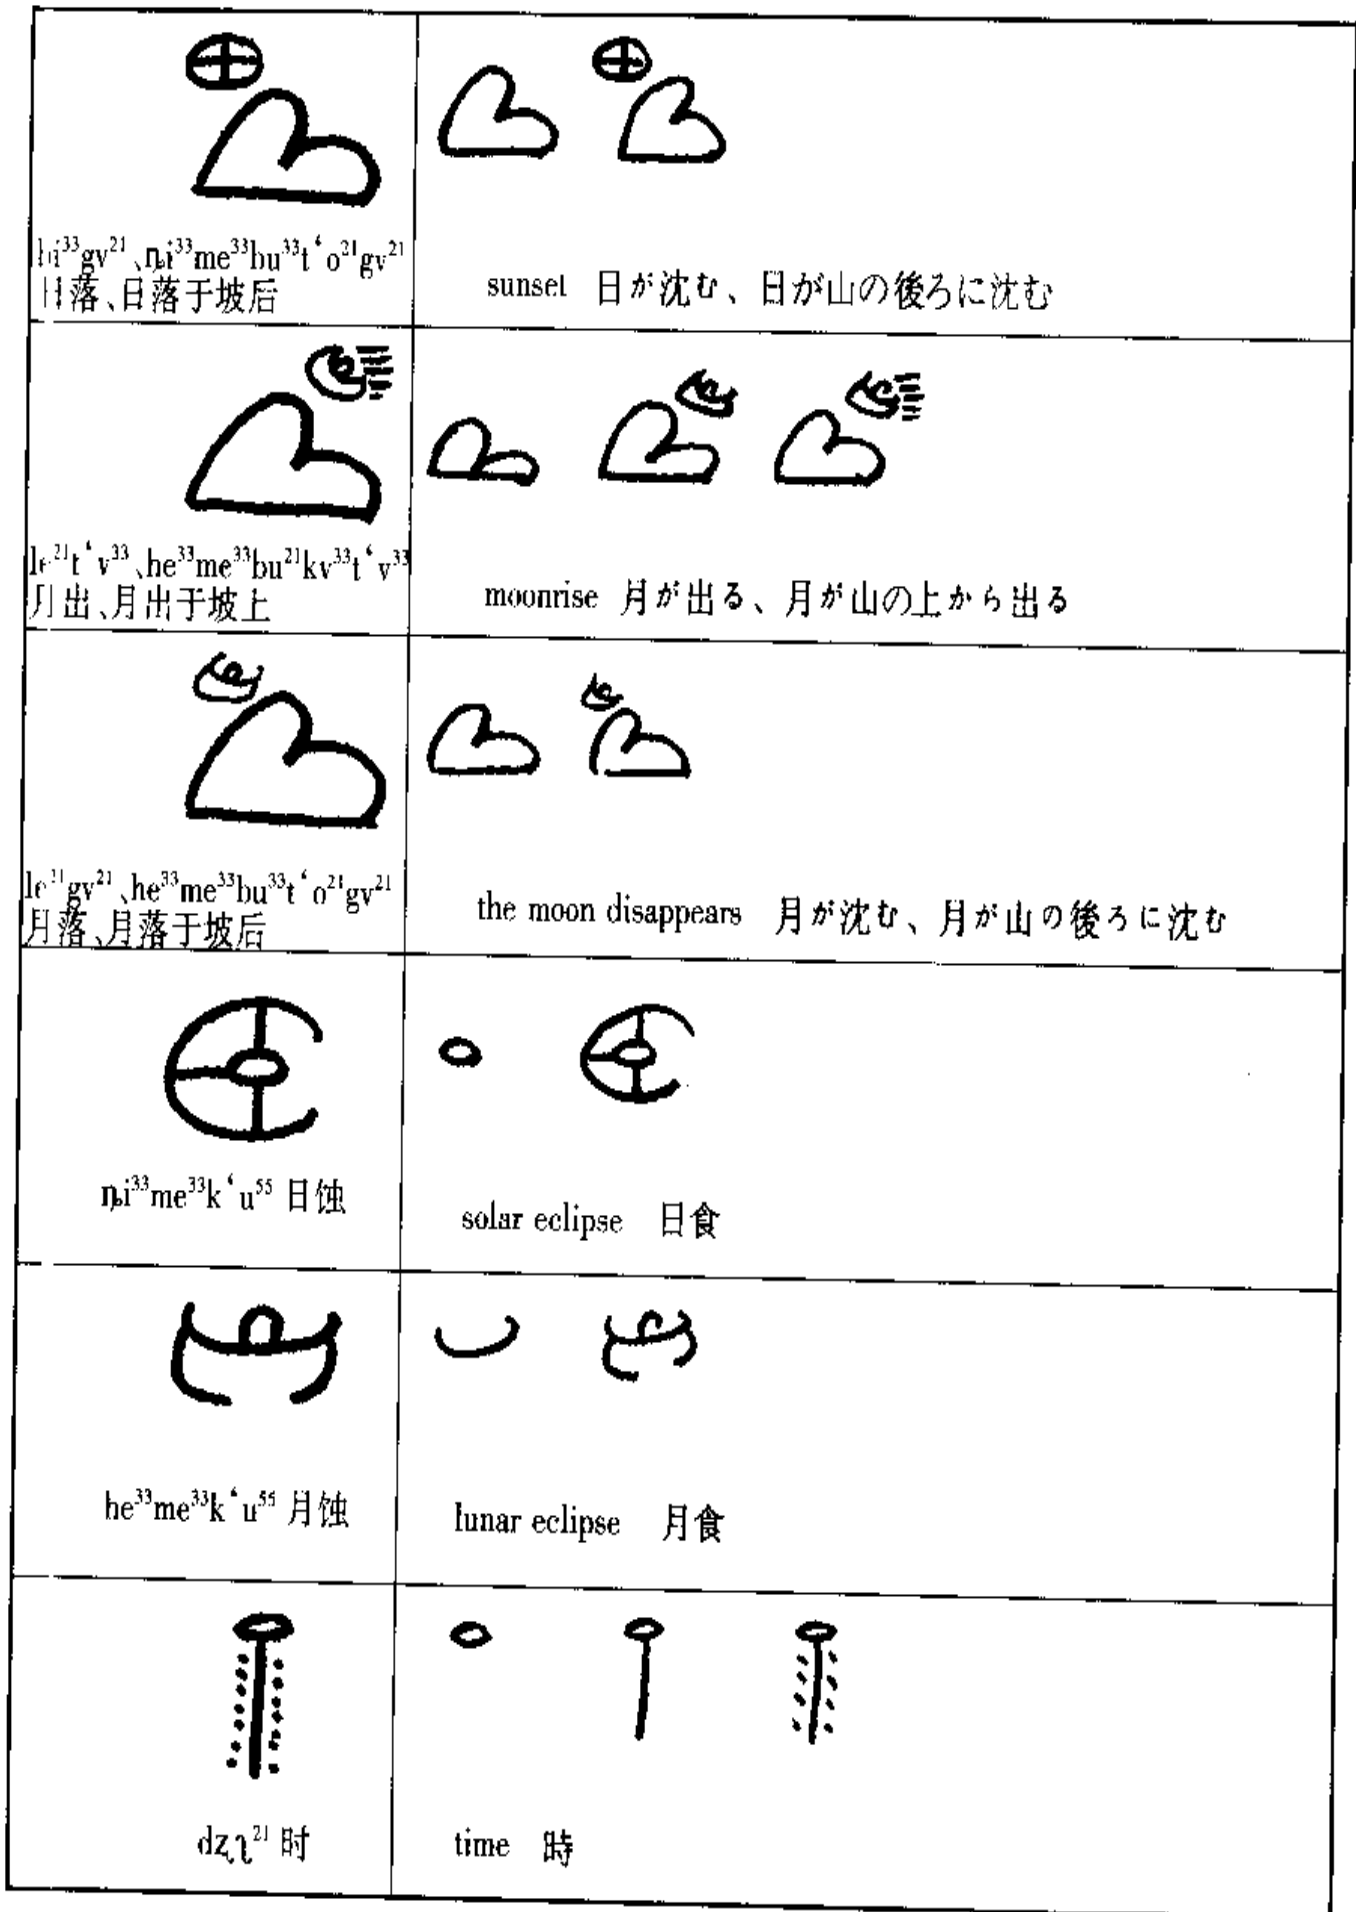 bi³³gv²¹、ȵi³³me³³bu³³tʻo²¹gv²¹
日落、日落于坡后
sunset 日が沈む、日が山の後ろに沈む
le²¹tʻv³³、he³³me³³bu²¹kv³³tʻv³³
月出、月出于坡上
moonrise 月が出る、月が山の上から出る
le²¹gv²¹、he³³me³³bu³³tʻo²¹gv²¹
月落、月落于坡后
the moon disappears 月が沈む、月が山の後ろに沈む
ȵi³³me³³kʻu⁵⁵ 日蚀
solar eclipse 日食
he³³me³³kʻu⁵⁵ 月蚀
lunar eclipse 月食
dʐʅ²¹ 时
time 時